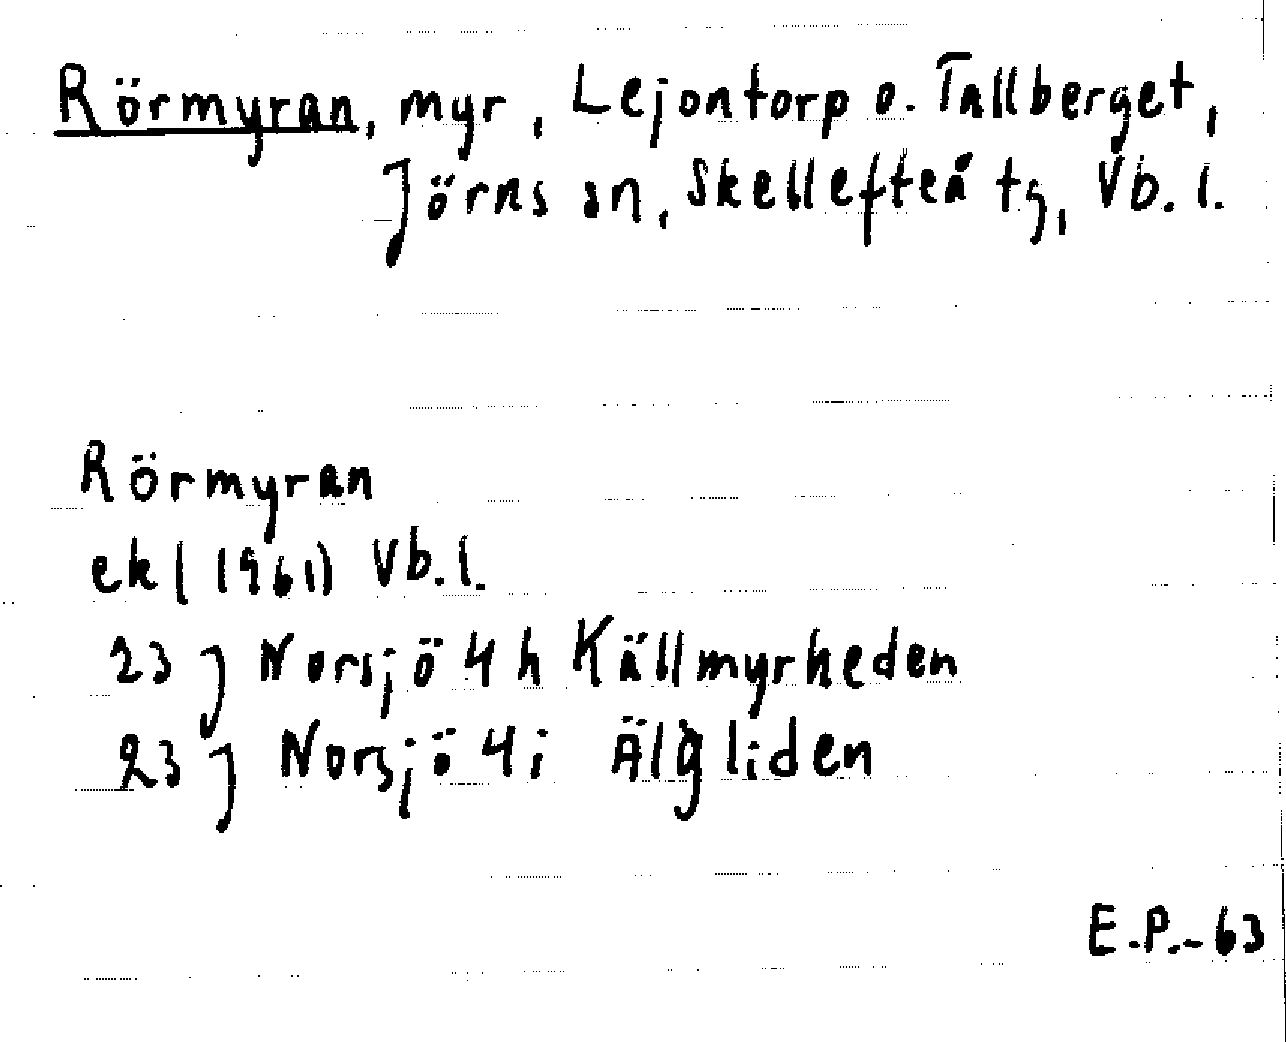 Rörmyran, myr, Lejontorp o. Tallberget,
Jörns sn, Skellefteå tg, Vb. l.
Rörmyran
ek (1961) Vb. l.
23 J Norsjö 4 h Källmyrheden
23 J Norsjö 4 i Älgliden
E.P.-63